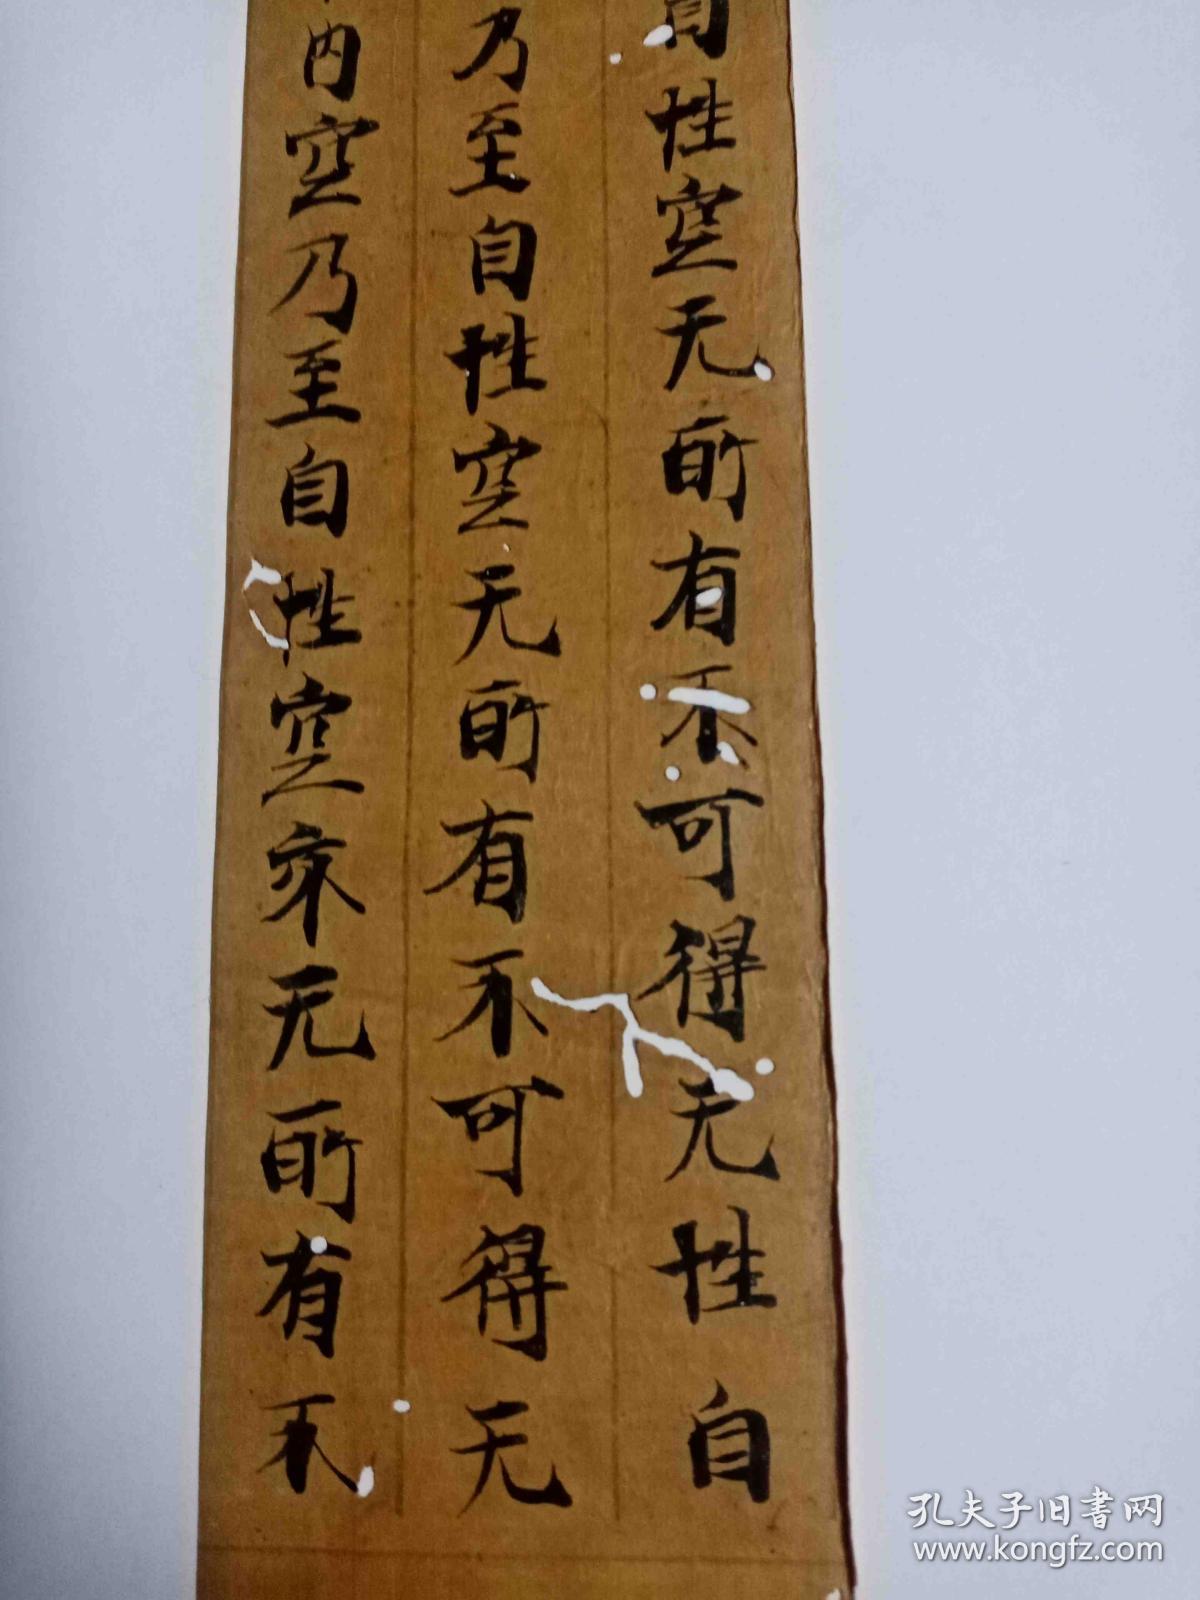 自性空无所有不可得无性自
乃至自性空无所有不可得无
内空乃至自性空亦无所有不
孔夫子旧书网
www.kongfz.com